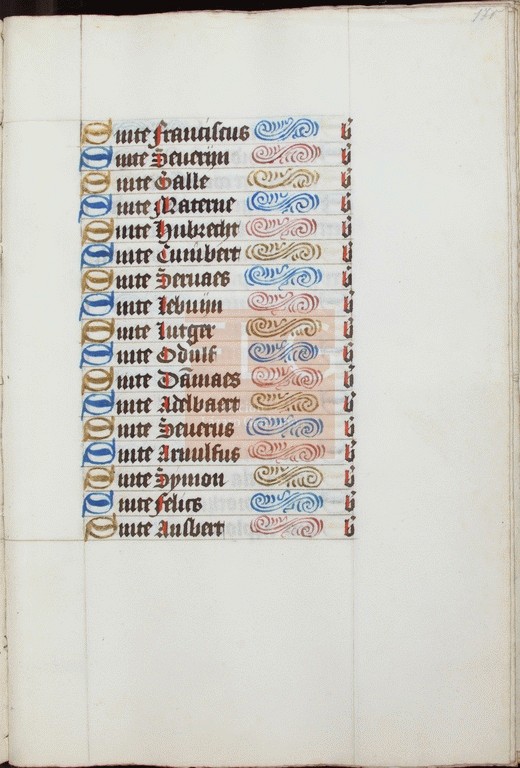 170
Sinte Franciscus b
Sinte Seuerijn b
Sinte Galle b
Sinte Materne b
Sinte Hubrecht b
Sinte Cunibert b
Sinte Seruaes b
Sinte Lebuijn b
Sinte Lutger b
Sinte Odulf b
Sinte Damaes b
Sinte Adelbaert b
Sinte Seuerus b
Sinte Arnulfus b
Sinte Symon b
Sinte Felics b
Sinte Ansbert b